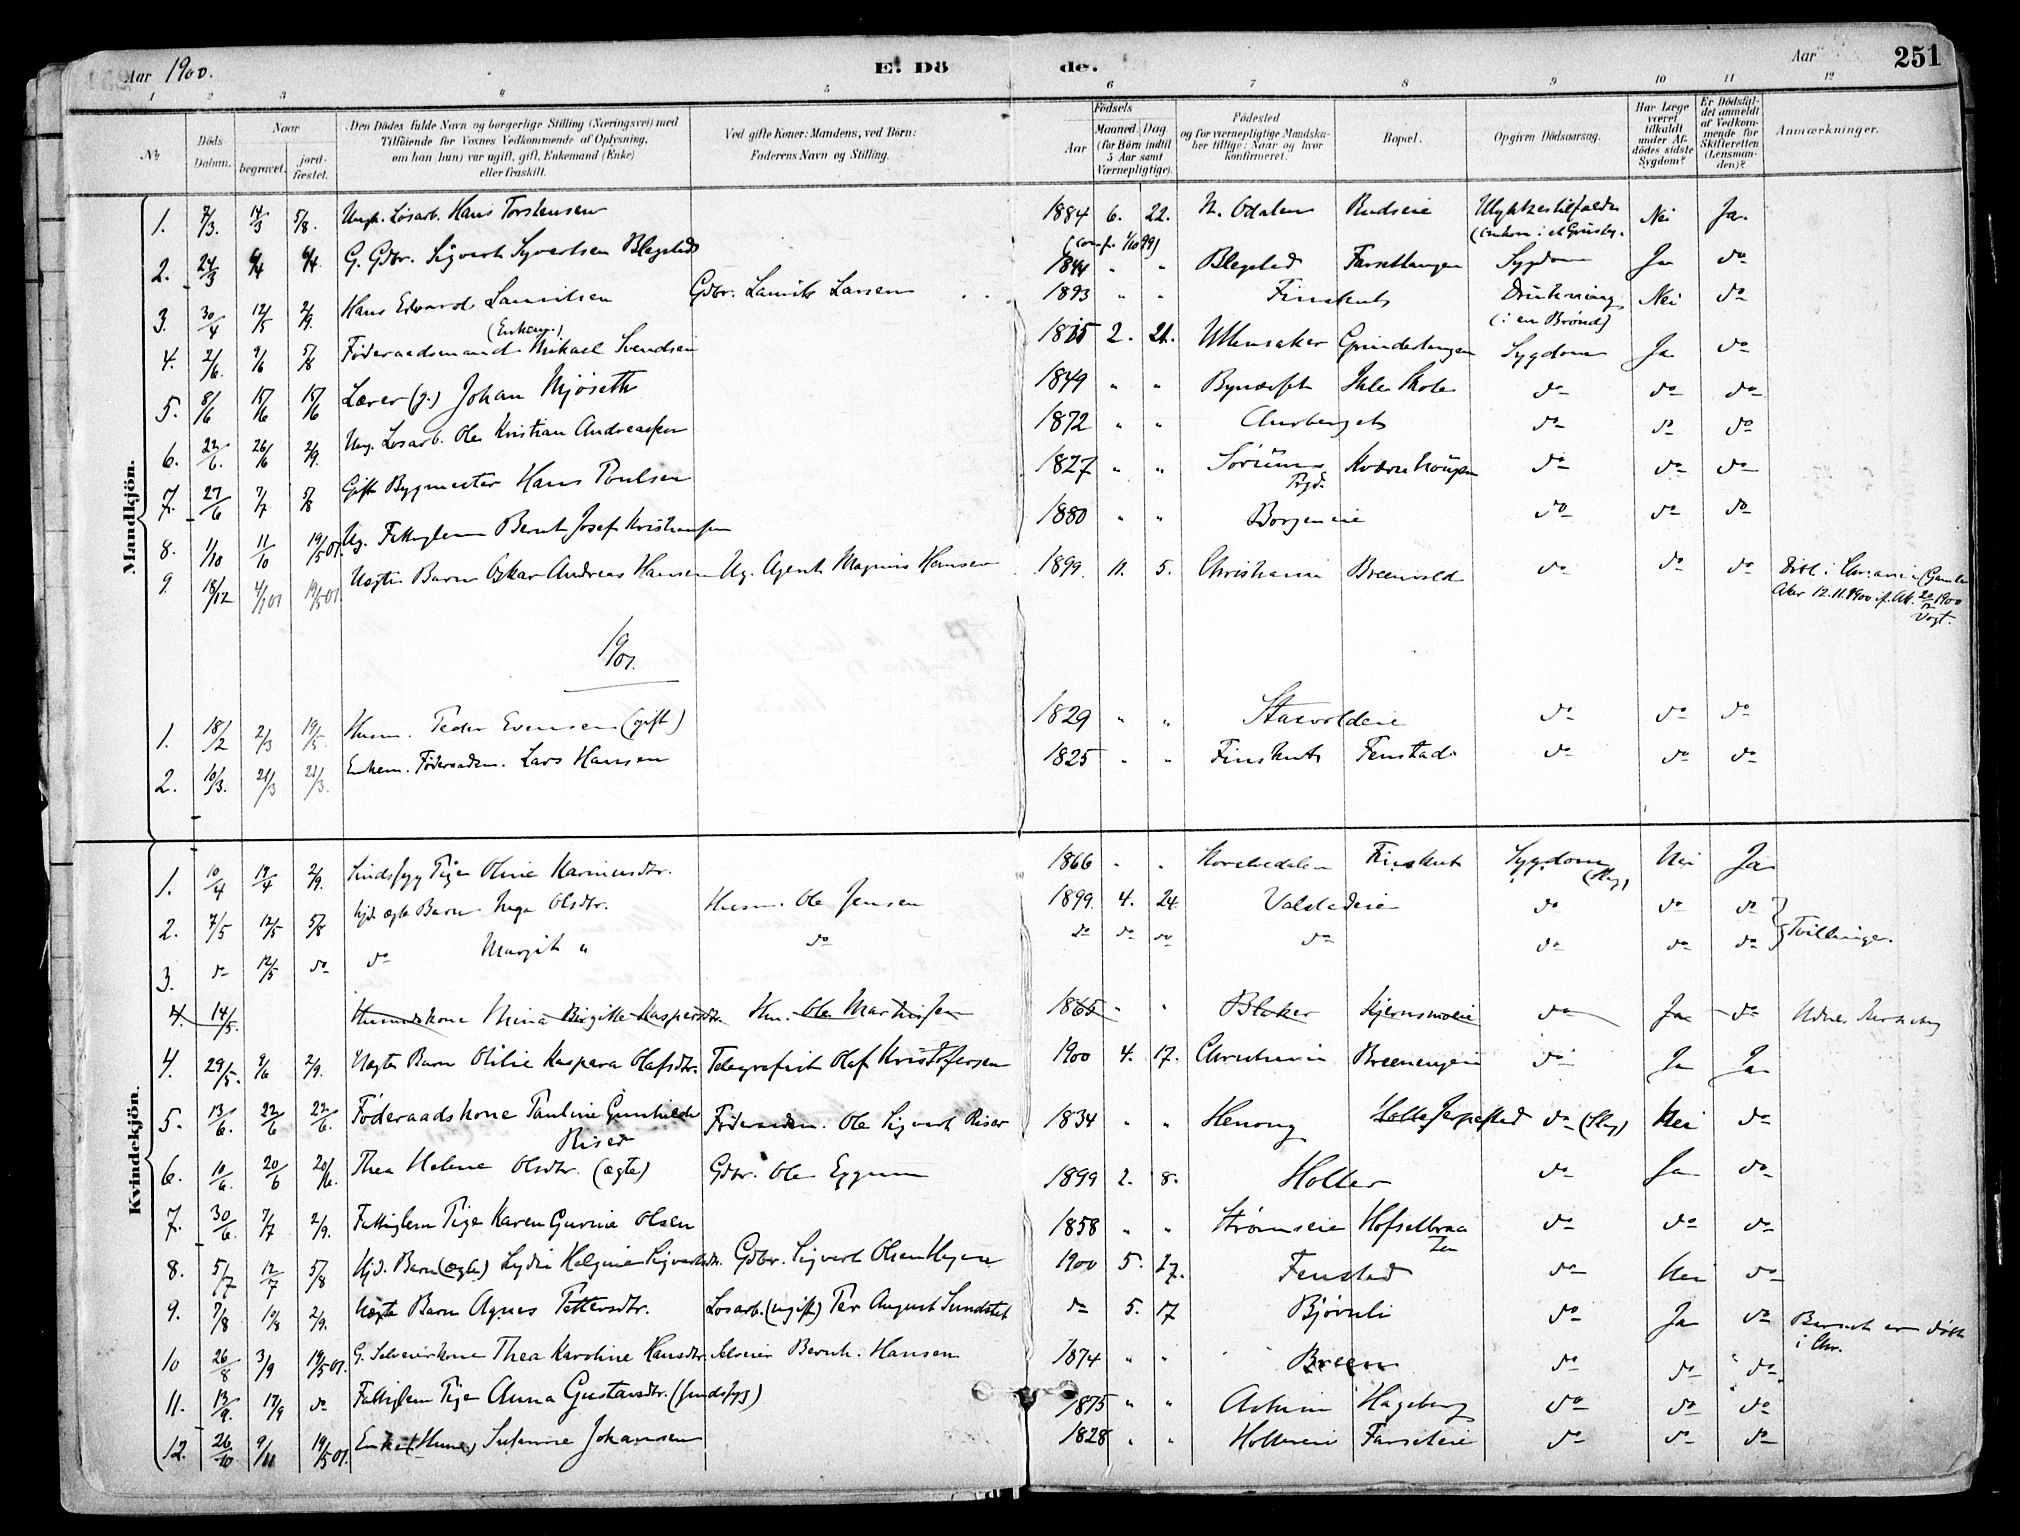 Aar 1900. E. Dö de. Aar 251
1 2 3 4 5 6 7 8 9 10 11 12
No Döds Datum. Naar begravet. jordfæstet. Den Dödes fulde Navn og borgerlige Stilling (Næringsvei) med Tilföiende for Voxnes Vedkommende af Oplysning, om han (hun) var ugift, gift, Enkemand (Enke) eller fraskilt. Ved gifte Koner: Mandens, ved Börn: Faderens Navn og Stilling. Födsels Aar Maaned. Dag (for Börn indtil 5 Aar samt Værnepligtige). Födested og for værnepligtige Mandskaber tillige: Naar og hvor konfirmeret. Bopæl. Opgiven Dödsaarsag. Har Læge været tilkaldt under Afdödes sidste Sygdom? Er Dödsfaldet anmeldt af Vedkommende for Skifteretten (Lensmanden)? Anmærkninger.
Mandkjön.
1. 7/3. 14/3 5/8. Ungk. Løsarb. Hans Torstensen 1884 6. 22. N. Odalen Rudseie Nei Ja.
2. 24/3 6/4 6/4. G. Gdbr. Sigvart Syvertsen Blegstad 1844 " " Blegstad Farsettangen Sygdom Ja do
3. 30/4 12/5 2/9. Hans Edvard Lauritsen Gdbr. Laurits Larsen 1893 " " Finskut Drukning (i en Brønd) Nei do
4. 2/6. 9/6 5/8 Føderaadsmand Mikael Svendsen (Enkem.) 1815 2. 21. Ullensaker Grindertangen Sygdom Ja do
5. 8/6 15/6 15/6 Lærer (g.) Johan Mjøseth 1849 " " Skole do do do
6. 22/6. 26/6 2/9. Ung. Løsarb. Ole Kristian Andreassen 1872 " " Aurberget do do do
7. 27/6 7/7 5/8 Gift Bygmester Hans Poulsen 1827 " " Sørum Prgd. Kværnhougen do do do
8. 1/10 11/10 19/5 01. Ug. Fattiglem Bernt Josef Kristiansen 1880 " " Borgeneie do do do
9. 18/12 4/1 01 19/5 01. Uægte Barn Oskar Andreas Hansen Ug. Agent Magnus Hansen 1899. 11. 5. Christiania Breenvold do do do Døbt i Chr.ania (Gamle Aker 12.11.1900 if. Att. 20/12 1900 Vogt.
1901.
1. 18/2 2/3 19/5. Husm. Peder Evensen (gift) 1829 " " Stasvoldeie do do do
2. 10/3. 21/3 21/3. Enkem. Føderaadsm. Lars Hansen 1825 " " Finskut Fenstad do do do
Kvindekjön.
1. 10/4 19/4 2/9. Sindssyg Pige Oline Karinusdtr. 1866 " " Finskut Sygdom (Slag) Nei Ja
2. 7/5 12/5 5/8 Hjd. ægte Barn Inga Olsdtr. Husm. Ole Jensen 1899. 4. 24. Valstadeie do do do
3. do 12/5 do do Margit " do do do do do do do do Tvillinger.
4. 14/5. Husmandskone Mina Birgitte Kaspersdtr. Hm. Ole Martinsen 1865 " " Blaker Kjernsmoeie do Ja do
4. 29/5. 9/6 2/9. Uægte Barn Otilie Kaspara Olafsdtr. Telegrafist Olaf Kristofersen 1900 4. 17. Christiania Breenengen do Ja Ja
5. 13/6. 22/6 22/6. Føderaadskone Pauline Gunhilde Riser Føderaadsm. Ole Sigvart Riser 1834 " " Henong Jerpestad do (Slag) Nei do
6. 10/6. 20/6 20/6. Thea Helene Olsdtr. (ægte) Gdbr. Ole Eggum 1899 2. 8. Holter do Ja do
7. 30/6. 7/7 2/9. Fattiglem Pige Karen Gurine Olsen 1858 " " Strømseie Hofselbraaten do do do
8. 5/7 12/7 5/8 Hjd. Barn (ægte) Lydia Helgine Sigvartsdtr. Gdbr. Sigvart Olsen 1900 5. 27. Fenstad do Nei do
9. 7/8 19/8 2/9. Uægte Barn Agnes Pettersdtr. Løsarb. (ugift) Per August Sundstet do 5. 17 Bjørnli do Ja do Barnet er døbt i Chr.
10 26/8 3/9 19/5 01. G. Selveierkone Thea Karoline Hansdtr. Selveier Bernh. Hansen 1874 " " Breen do do do
11. 13/9. 17/9 do Fattiglem Pige Anna Gustavsdtr. (sindssyg) 1875 " " Hageberg do do do
12. 26/10 9/11 19/5 01. Enke (Husm.) Susanne Johansen 1828 " " Holtereie Farseteie do do do